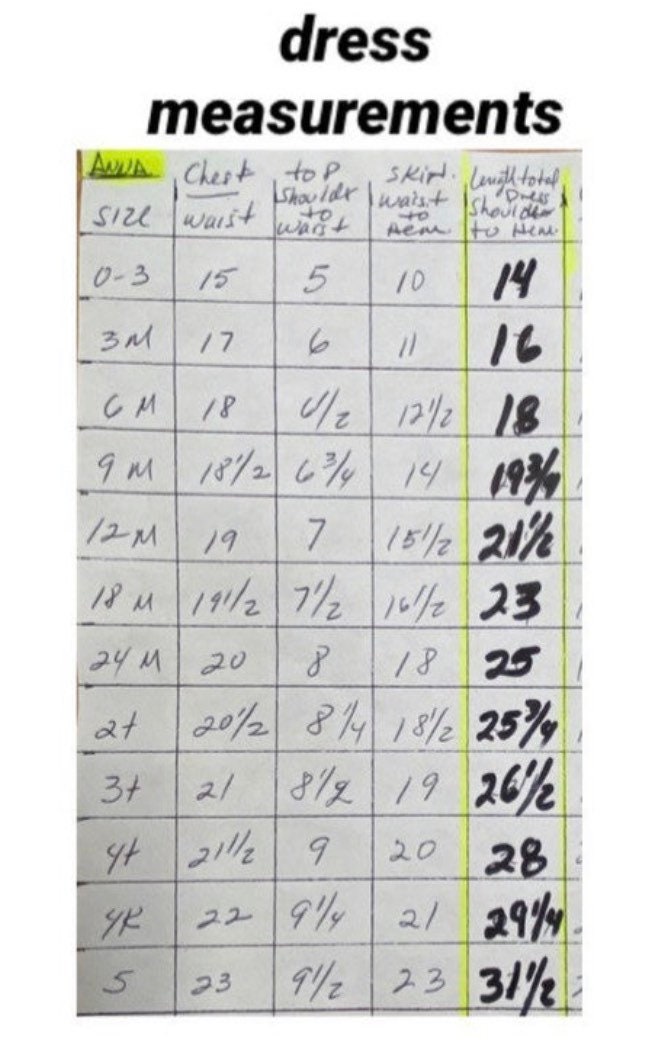 dress
measurements
ANNA
SIZE Chest waist top Shoulder to waist Skirt. waist to Hem Length total Dress Shoulder to Hem
0-3 15 5 10 14
3M 17 6 11 16
6M 18 6 1/2 12 1/2 18
9M 18 1/2 6 3/4 14 19 3/4
12M 19 7 15 1/2 21 1/2
18M 19 1/2 7 1/2 16 1/2 23
24M 20 8 18 25
2t 20 1/2 8 1/4 18 1/2 25 3/4
3t 21 8 1/2 19 26 1/2
4t 21 1/2 9 20 28
22 9 1/4 21 29 1/4
5 23 9 1/2 23 31 1/2